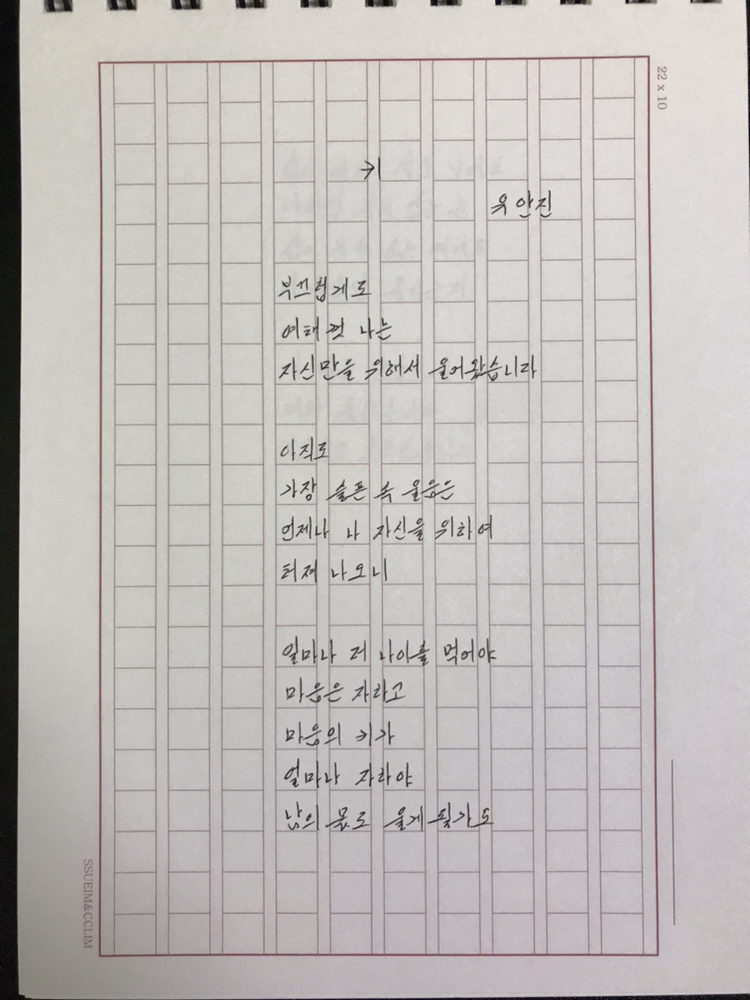 키
유안진
부끄럽게도
여태껏 나는
자신만을 위해서 울어왔습니다
아직도
가장 슬픈 속 울음은
언제나 나 자신을 위하여
터져 나오니
얼마나 더 나이를 먹어야
마음은 자라고
마음의 키가
얼마나 자라야
남의 몫도 울게 될까요
22 x 10
SSUEIM&CCLIM